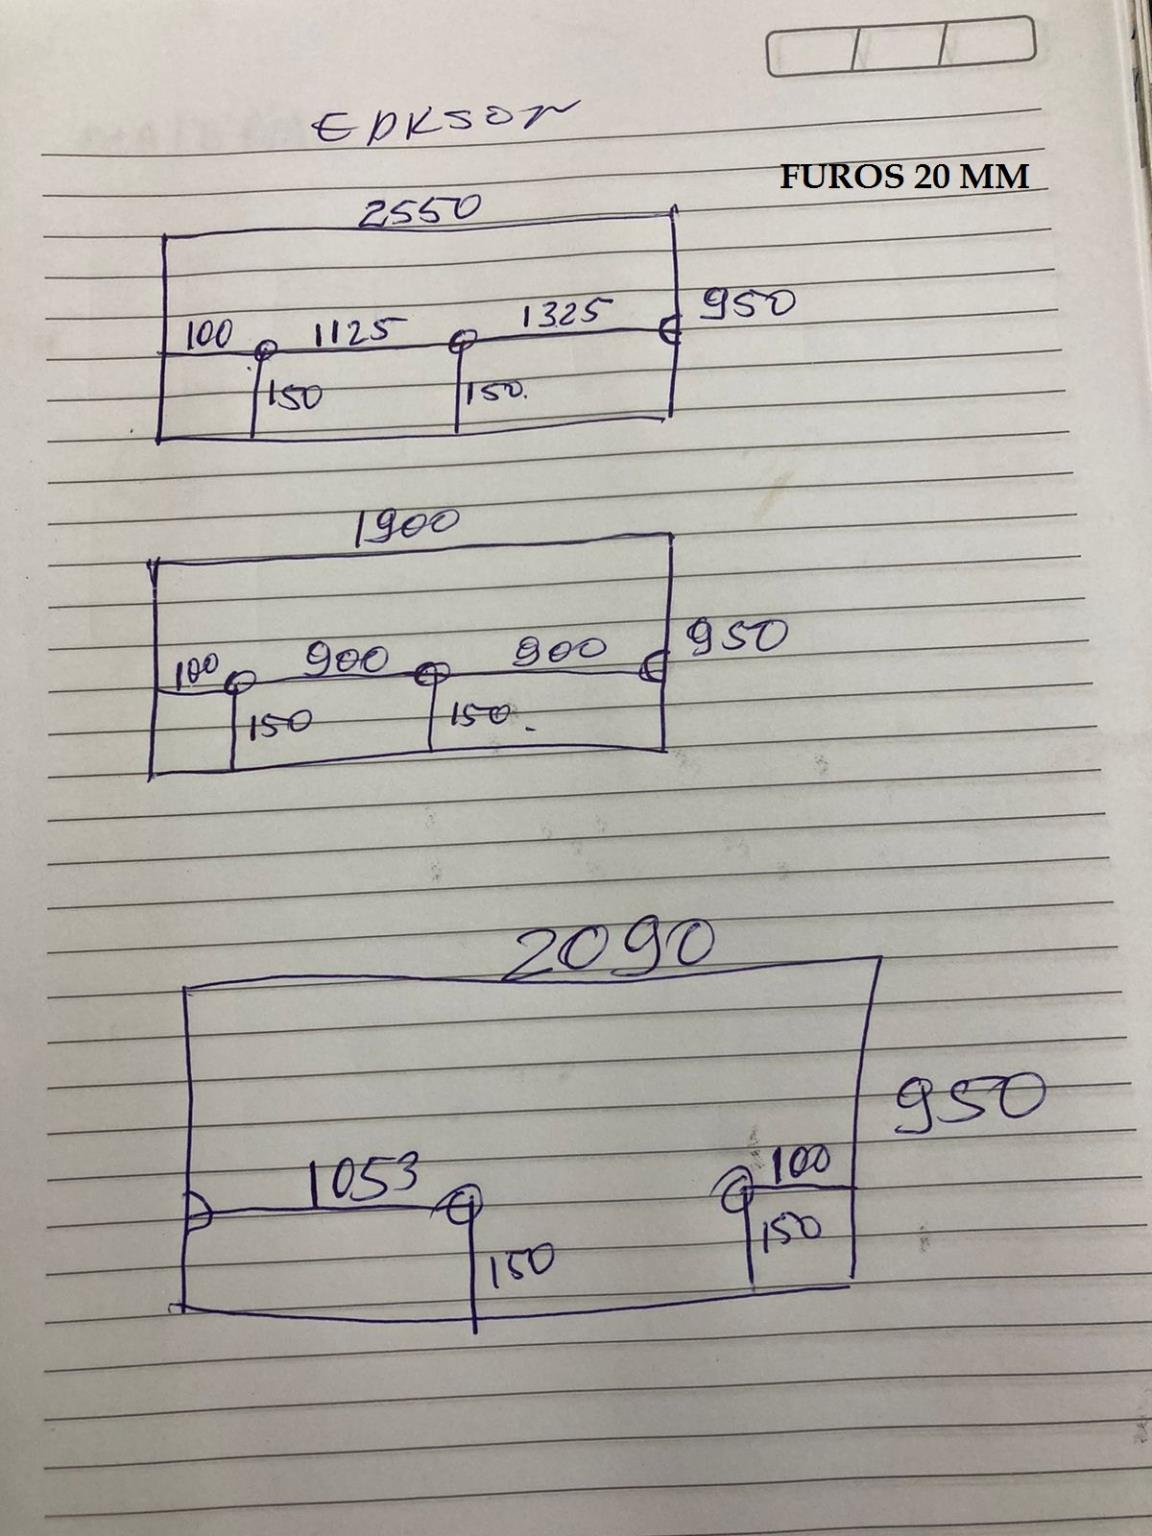 EDKSON
FUROS 20 MM
2550
100 1125 1325 950
150 150.
1900
100 900 900 950
150 150.
2090
950
1053 100
150 150